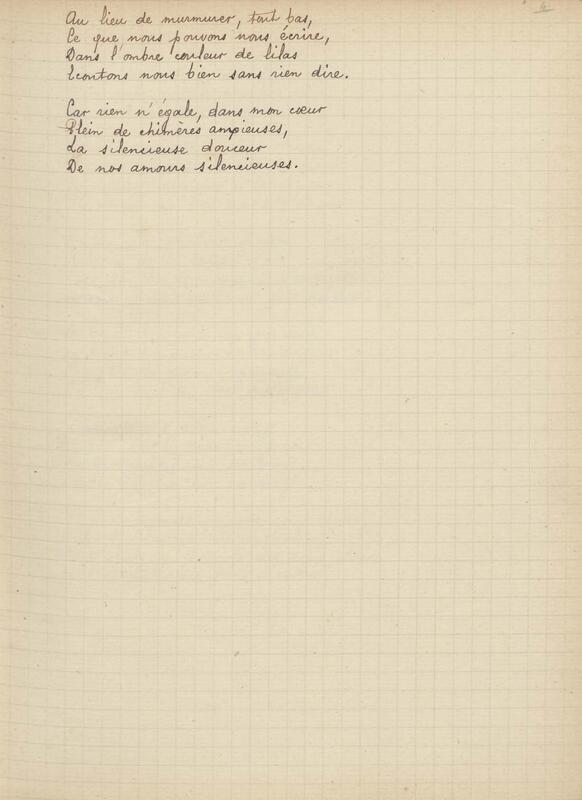 Au lieu de murmurer, tout bas,
Ce que nous pouvons nous écrire,
Dans l'ombre couleur de lilas
Ecoutons nous bien sans rien dire.
Car rien n'égale, dans mon cœur
Plein de chimères anxieuses,
La silencieuse douceur
De nos amours silencieuses.